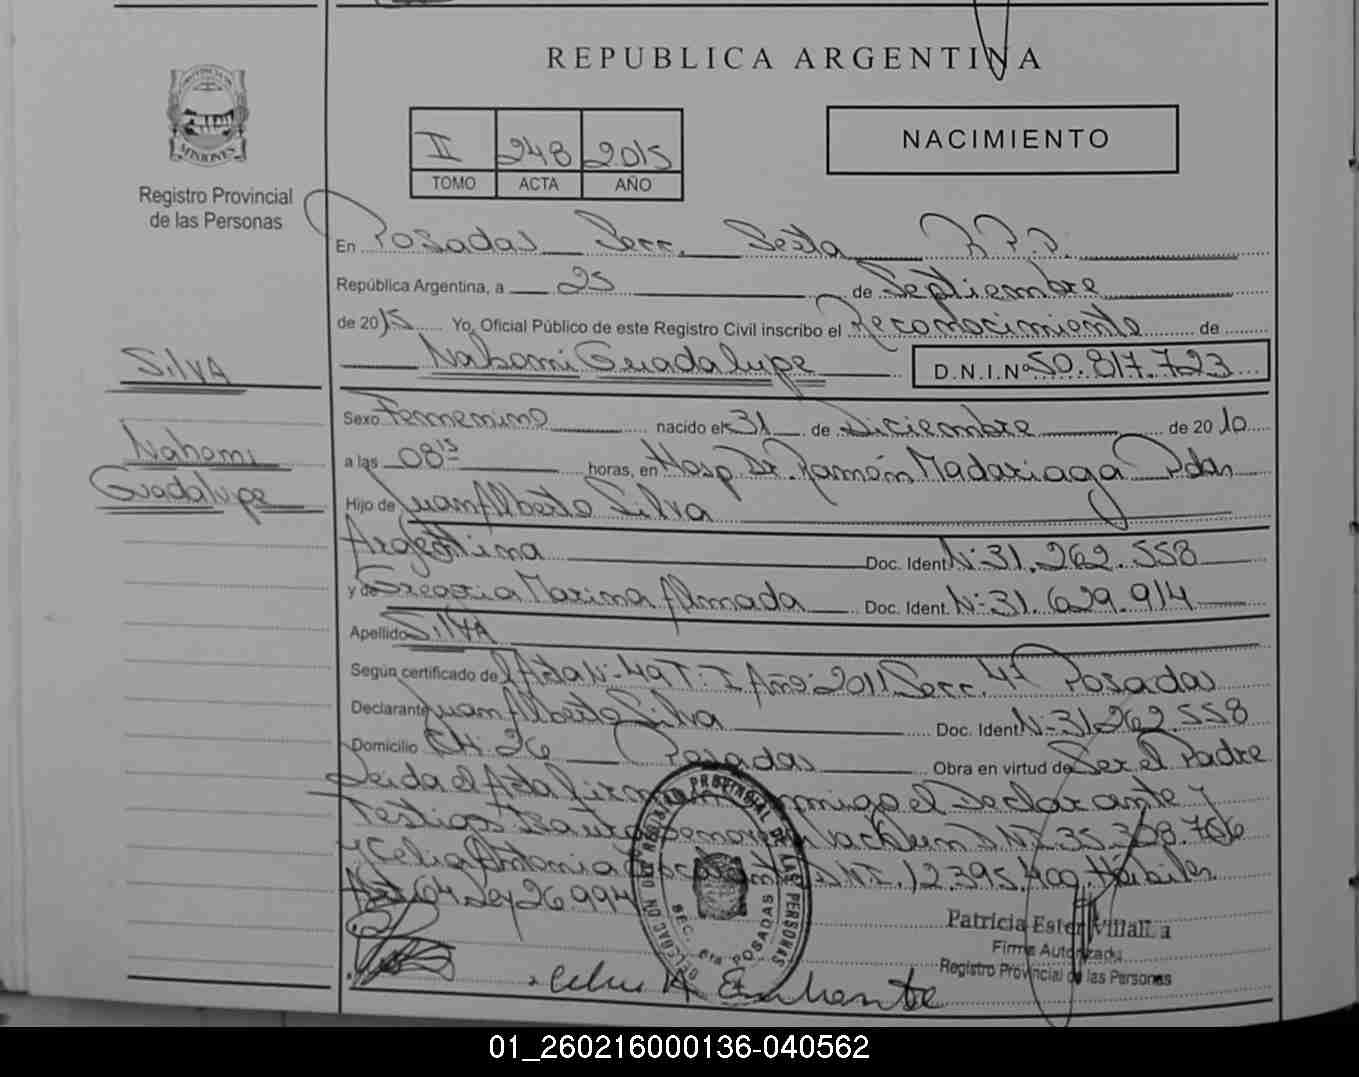 REPUBLICA ARGENTINA
PROVINCIA DE
MISIONES
Registro Provincial
de las Personas
II 248 2015
TOMO ACTA AÑO
NACIMIENTO
En Posadas Secc. Sexta R.P.P.
República Argentina, a 25 de Septiembre
de 2015 Yo, Oficial Público de este Registro Civil inscribo el Reconocimiento de
Nahomi Guadalupe D.N.I.Nº 50.817.723
SILVA
Nahomi
Guadalupe
Sexo Femenino nacido el 31 de Diciembre de 2010
a las 08 15 horas, en Hosp. Dr. Ramón Madariaga Pdas
Hijo de Juan Alberto Silva
Argentina Doc. Ident. Nº 31.262.558
y de Gregoria Marina Almada Doc. Ident. Nº 31.629.914
Apellido SILVA
Según certificado de Acta Nº 49 T: I Año: 2011 Secc. 4ª Posadas
Declarante Juan Alberto Silva Doc. Ident. Nº 31.262.558
Domicilio CH: 26 Posadas Obra en virtud de Ser el Padre
Leida el Acta firman conmigo el Declarante y
Testigos DNI 35.328.706
y Celia Antonia DNI. 12.395.409. Hábiles
Art 64 Ley 26994
DELEGACION DEL REGISTRO PROVINCIAL DE LAS PERSONAS
SEC. 6ta POSADAS
Patricia Ester Villalba
Firma Autorizada
Registro Provincial de las Personas
01_260216000136-040562